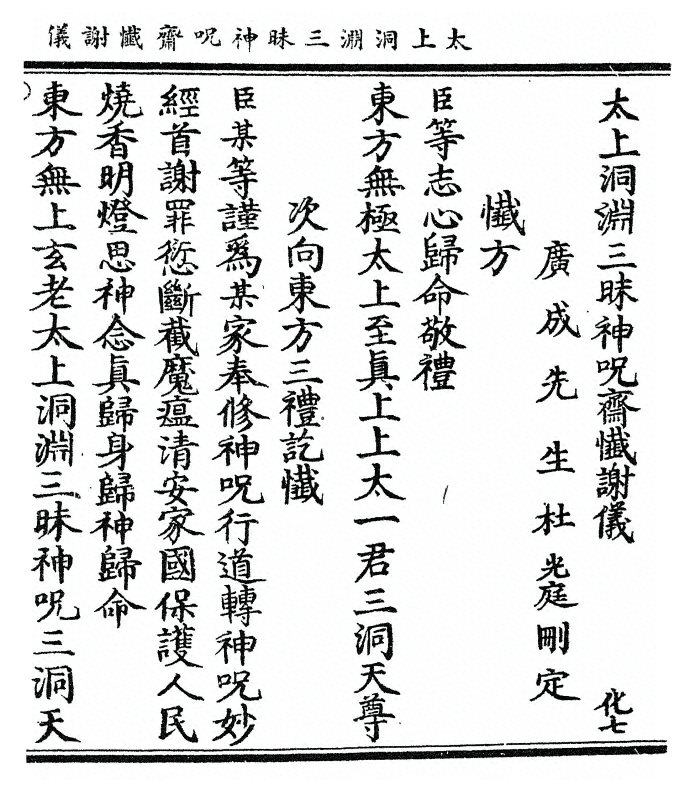 太上洞淵三昧神呪齋懺謝儀
太上洞淵三昧神呪齋懺謝儀 化七
廣成先生杜光庭刪定
懺方
臣等志心歸命敬禮
東方無極太上至眞上上太一君三洞天尊
次向東方三禮訖懺
臣某等謹爲某家奉修神呪行道轉神呪妙
經首謝罪愆斷截魔瘟清安家國保護人民
燒香明燈思神念眞歸身歸神歸命
東方無上玄老太上洞淵三昧神呪三洞天